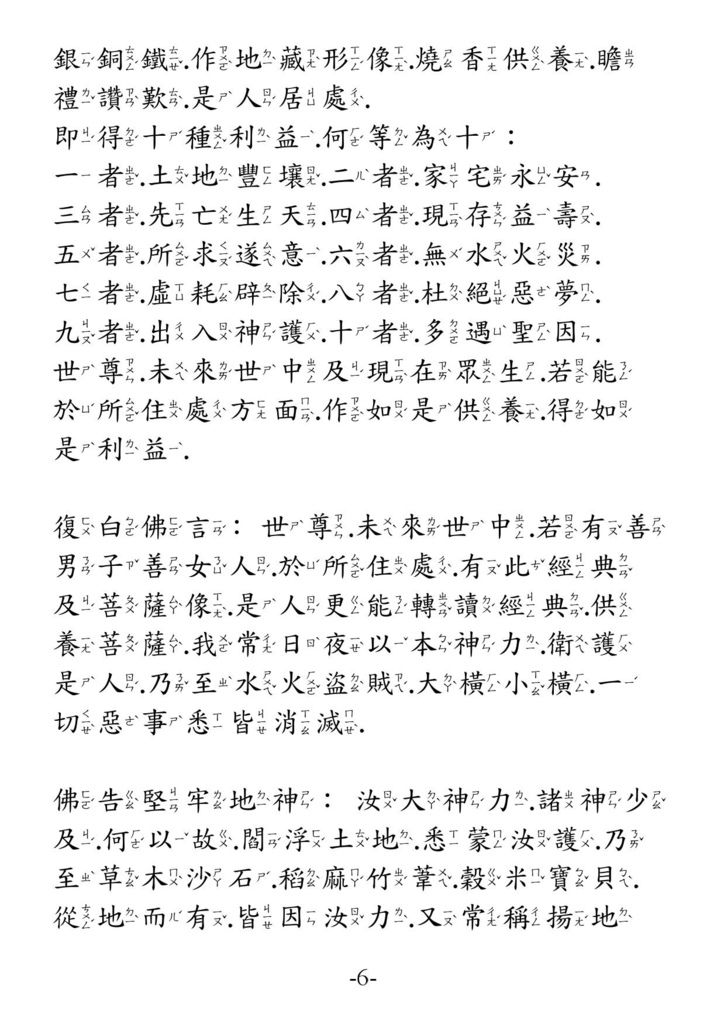 銀銅鐵.作地藏形像.燒香供養.瞻
禮讚歎.是人居處.
即得十種利益.何等為十：
一者.土地豐壤.二者.家宅永安.
三者.先亡生天.四者.現存益壽.
五者.所求遂意.六者.無水火災.
七者.虛耗辟除.八者.杜絕惡夢.
九者.出入神護.十者.多遇聖因.
世尊.未來世中及現在眾生.若能
於所住處方面.作如是供養.得如
是利益.
復白佛言：世尊.未來世中.若有善
男子善女人.於所住處.有此經典
及菩薩像.是人更能轉讀經典.供
養菩薩.我常日夜以本神力.衛護
是人.乃至水火盜賊.大橫小橫.一
切惡事悉皆消滅.
佛告堅牢地神：汝大神力.諸神少
及.何以故.閻浮土地.悉蒙汝護.乃
至草木沙石.稻麻竹葦.穀米寶貝.
從地而有.皆因汝力.又常稱揚地
-6-